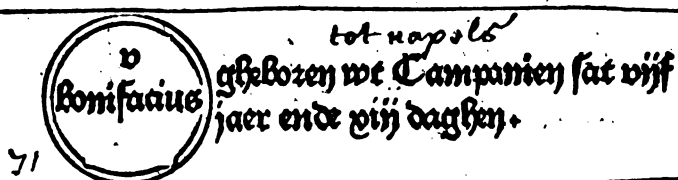 tot napels
v
bonifacius
gheboren wt Campanien sat vijf
jaer ende xiij daghen.
71